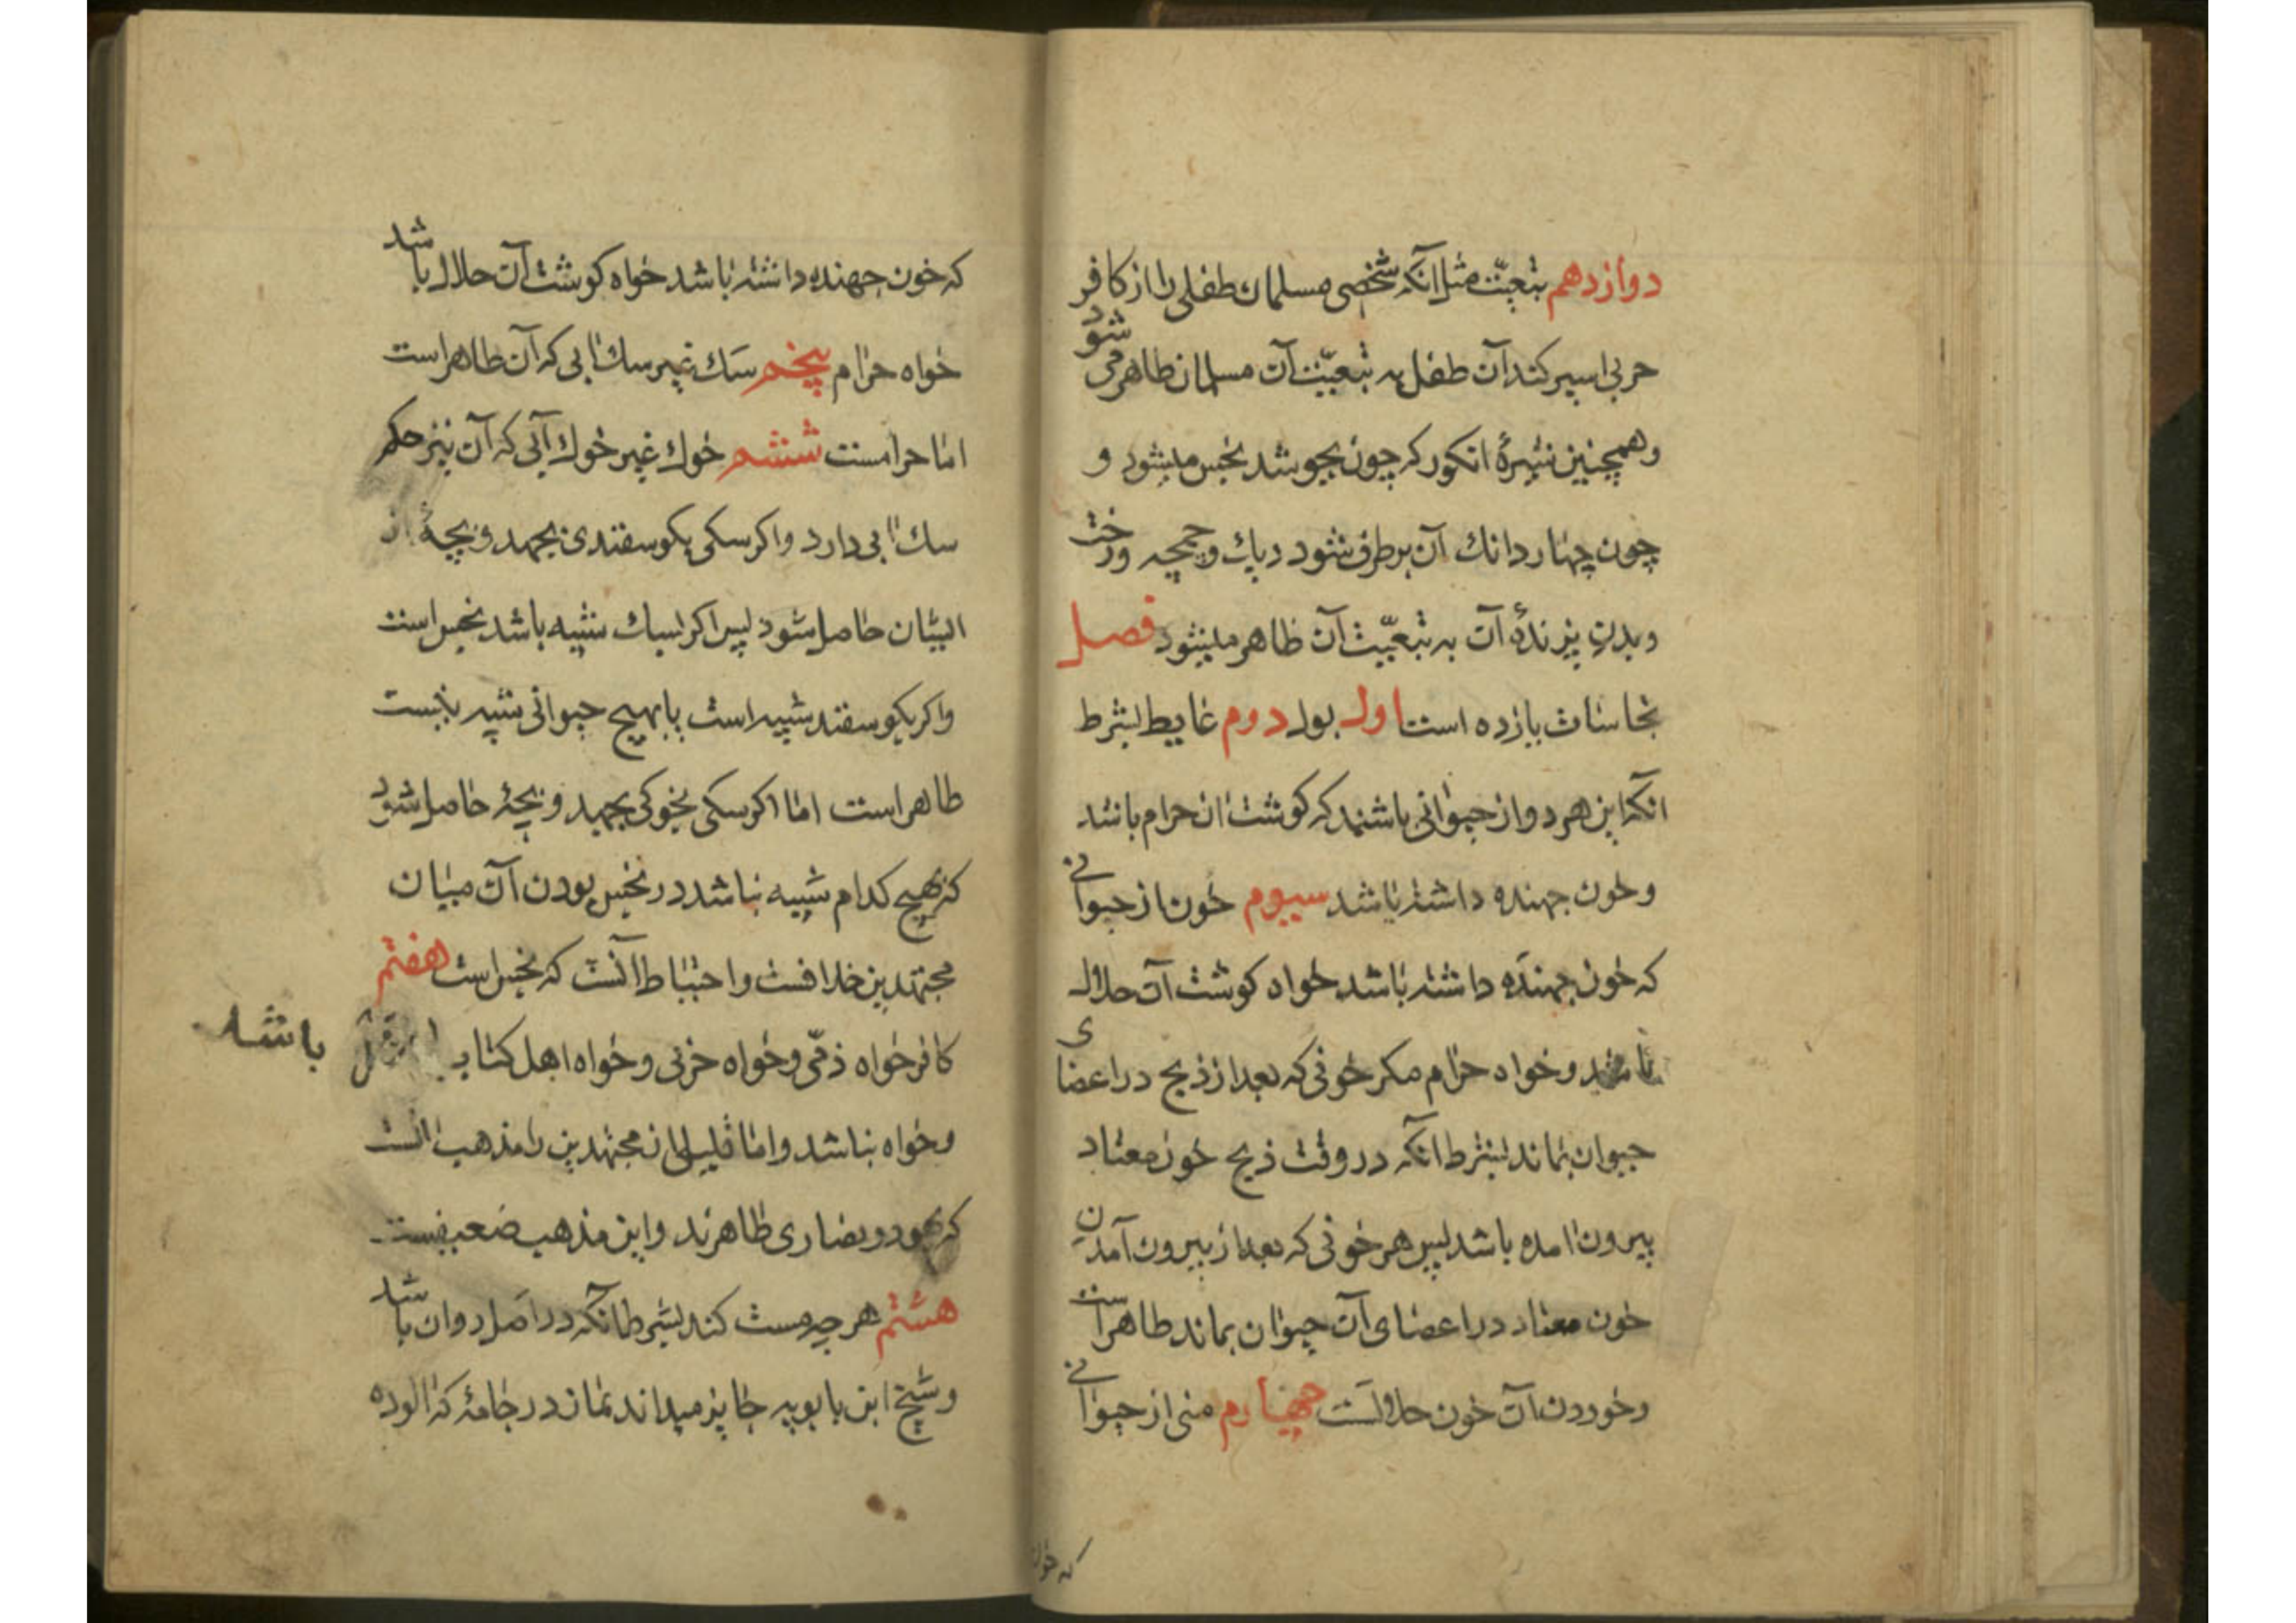 دوازدهم بتبعیّت مثل انکه شخصی مسلمان طفلی را از کافر
حربی اسیر کند آن طفل به تبعیّت آن مسلمان طاهر می شود
وهمچنین شیرهٔ انکور که چون بجوشد نجس میشود و
چون چهار دانك آن برطرف شود دیك وچمچه ورخت
وبدن پزندهٔ آن به تبعیّت آن طاهر میشود فصل
نجاسات یازده است اول بول دوم غایط بشرط
انکه این هر دو از حیوانی باشند که کوشت ان حرام باشد
وخون جهنده داشته باشد سیوم خون از حیوانی
که خون جهنده داشته باشد خواه کوشت آن حلال
باشد وخواه حرام مکر خونی که بعد از ذبح در اعضای
حیوان بماند بشرط انکه در وقت ذبح خون معتاد
بیرون امده باشد پس هر خونی که بعد از بیرون آمدن
خون معتاد در اعضای آن حیوان بماند طاهر است
وخوردن آن خون حلالست چهارم منی از حیوانی
که خون
که خون جهنده داشته باشد خواه کوشت آن حلال باشد
خواه حرام پنجم سك غیر سك ابی که آن طاهر است
اما حرامست ششم خوك غیر خوك آبی که آن نیز حکم
سك ابی دارد واکر سکی بکوسفندی بجهد وبچهٔ از
ایشان حاصل شود پس اکر بسك شبیه باشد نجس است
واکر بکوسفند شبیه است یا بهیچ حیوانی شبیه نیست
طاهر است اما اکر سکی بخوکی بجهد وبچهٔ حاصل شود
که بهیچ کدام شبیه نباشد در نجس بودن آن میان
مجتهدین خلافست واحتیاط آنست که نجس است هفتم
کافر خواه ذمّی وخواه حربی وخواه اهل کتاب باشد
وخواه نباشد واما قلیلی از مجتهدین را مذهب انست
که یهود ونصاری طاهرند واین مذهب ضعیفست
هشتم هر چه مست کند بشرط آنکه در اصل روان باشد
وشیخ ابن بابویه جایز میداند نماز در جامهٔ که الوده